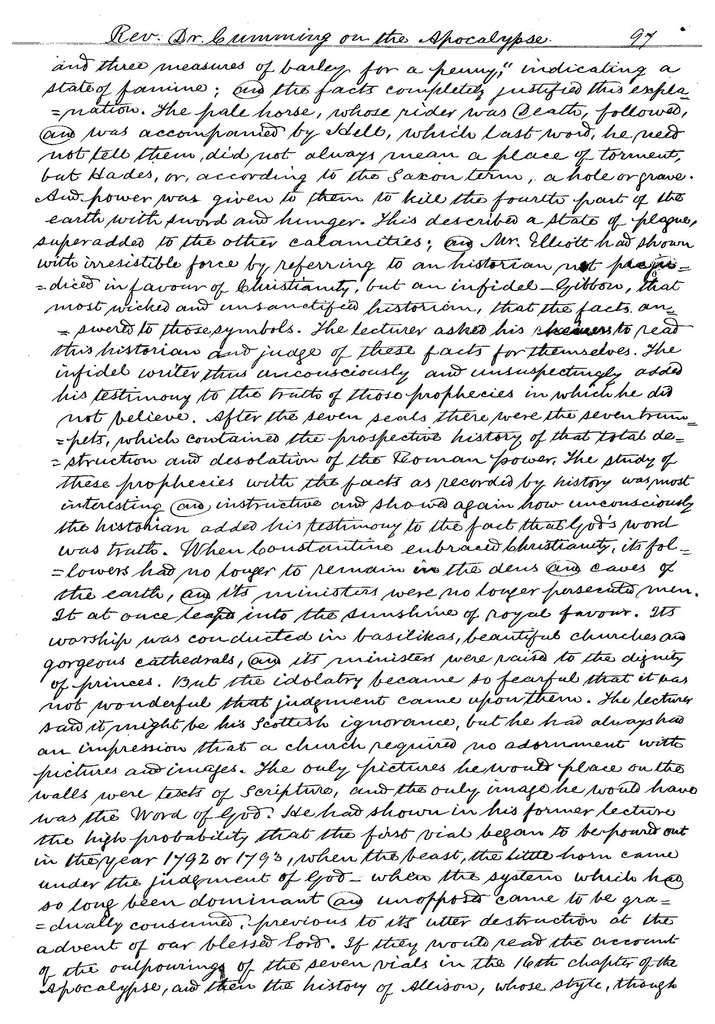 Rev. Dr. Cumming on the Apocalypse. 97
and three measures of barley for a penny," indicating a
state of famine; and the facts completely justified this expla=
=nation. The pale horse, whose rider was Death, followed,
and was accompanied by Hell, which last word, he need
not tell them, did not always mean a place of torment,
but Hades, or, according to the Saxon term, a hole or grave.
And power was given to them to kill the fourth part of the
earth with sword and hunger. This described a state of plague,
superadded to the other calamities; and Mr. Elliott had shown
with irresistible force by referring to an historian not preju=
=diced in favour of Christianity, but an infidel – Gibbon, that
most wicked and unsanctified historian, that the facts an=
=swered to those symbols. The lecturer asked his hearers to read
this historian and judge of these facts for themselves. The
infidel writer thus unconsciously and unsuspectingly added
his testimony to the truth of those prophecies in which he did
not believe. After the seven seals there were the seven trum=
=pets, which contained the prospective history of that total de=
=struction and desolation of the Roman power. The study of
these prophecies with the facts as recorded by history was most
interesting and instructive and showed again how unconsciously
the historian added his testimony to the fact that God's word
was truth. When Constantine embraced Christianity, its fol=
=lowers had no longer to remain in the dens and caves of
the earth, and its ministers were no longer persecuted men.
It at once leapt into the sunshine of royal favour. Its
worship was conducted in basilikas, beautiful churches and
gorgeous cathedrals, and its ministers were raised to the dignity
of princes. But the idolatry became so fearful that it was
not wonderful that judgment came upon them. The lecturer
said it might be his Scottish ignorance, but he had always had
an impression that a church required no adornment with
pictures and images. The only pictures he would place on the
walls were texts of Scripture, and the only image he would have
was the Word of God. He had shown in his former lecture
the high probability that the first vial began to be poured out
in the year 1792 or 1793, when the beast, the little horn came
under the judgment of God – when the system which had
so long been dominant and unopposed came to be gra=
=dually consumed, previous to its utter destruction at the
advent of our blessed Lord. If they would read the account
of the outpourings of the seven vials in the 16th chapter of the
Apocalypse, and then the history of Allison, whose style, though